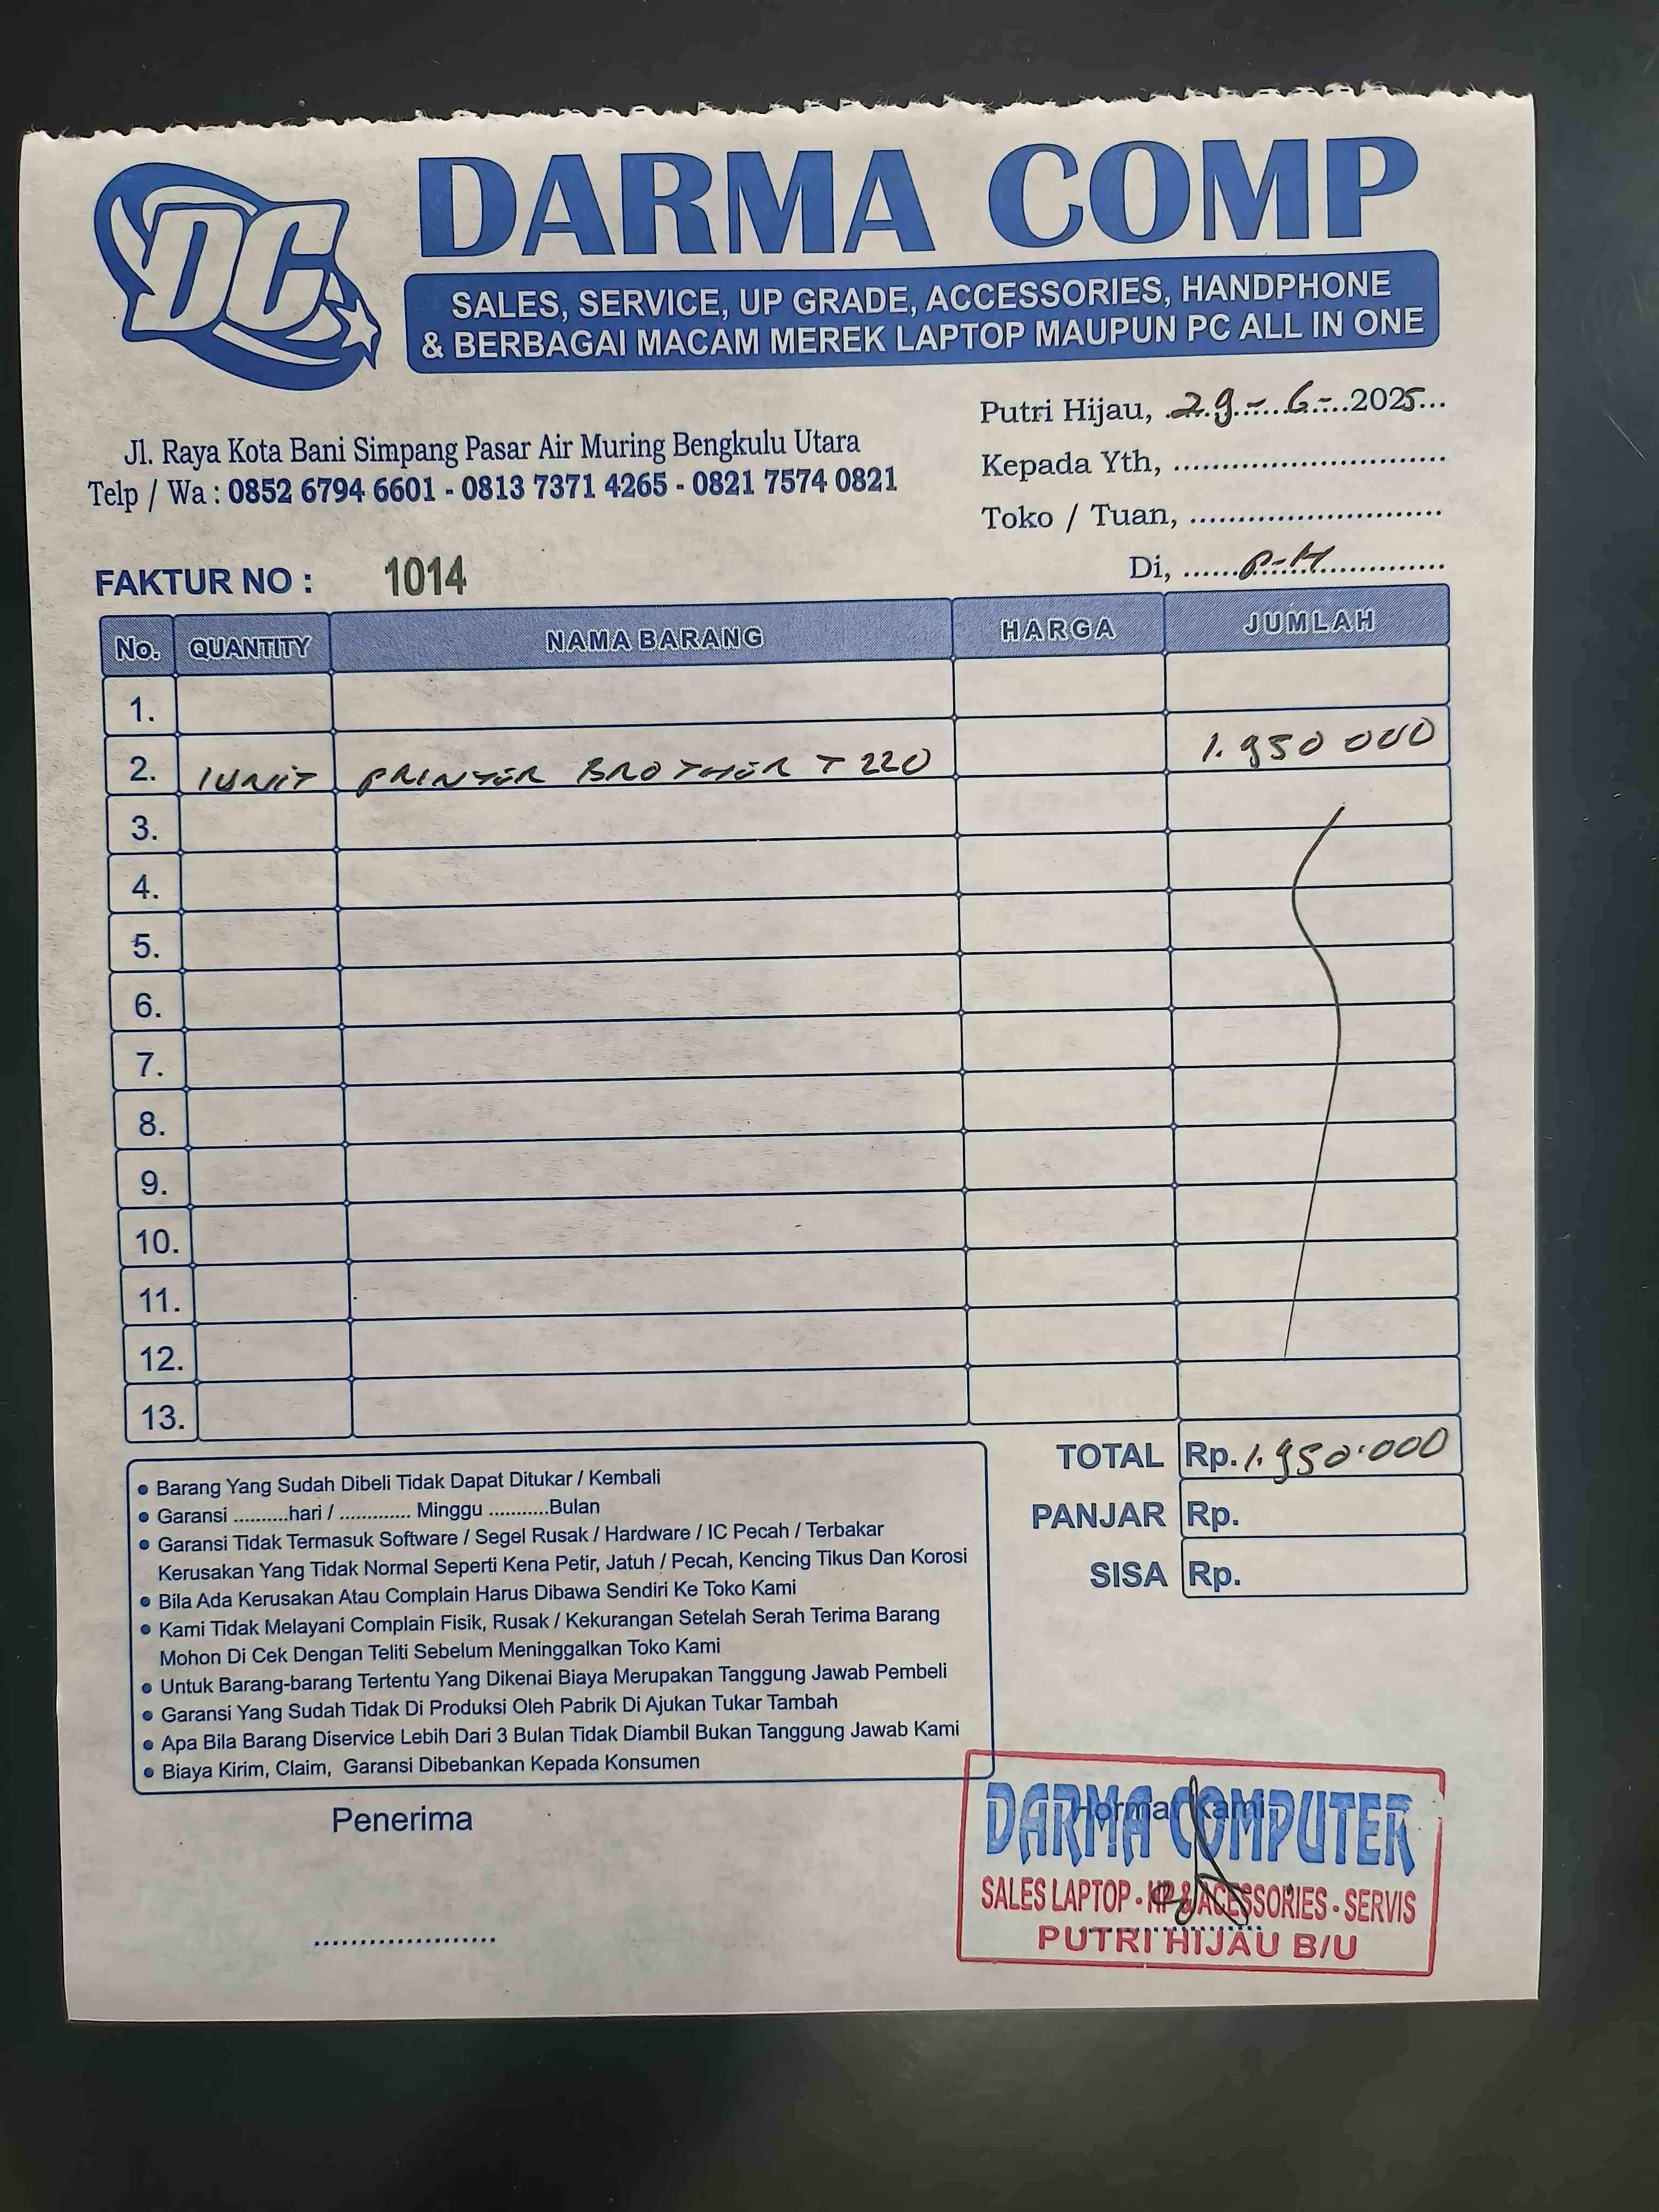 DC
DARMA COMP
SALES, SERVICE, UP GRADE, ACCESSORIES, HANDPHONE
& BERBAGAI MACAM MEREK LAPTOP MAUPUN PC ALL IN ONE
Jl. Raya Kota Bani Simpang Pasar Air Muring Bengkulu Utara
Telp / Wa : 0852 6794 6601 - 0813 7371 4265 - 0821 7574 0821
Putri Hijau, 29 - 6 - 2025
Kepada Yth, ............................
Toko / Tuan, ..........................
Di, ...... P.H ..............
FAKTUR NO : 1014
No. QUANTITY NAMA BARANG HARGA JUMLAH
1.
2. 1 UNIT PRINTER BROTHER T 220 1.950 000
3.
4.
5.
6.
7.
8.
9.
10.
11.
12.
13.
TOTAL Rp. 1.950.000
PANJAR Rp.
SISA Rp.
• Barang Yang Sudah Dibeli Tidak Dapat Ditukar / Kembali
• Garansi ..........hari / ............. Minggu ...........Bulan
• Garansi Tidak Termasuk Software / Segel Rusak / Hardware / IC Pecah / Terbakar
Kerusakan Yang Tidak Normal Seperti Kena Petir, Jatuh / Pecah, Kencing Tikus Dan Korosi
• Bila Ada Kerusakan Atau Complain Harus Dibawa Sendiri Ke Toko Kami
• Kami Tidak Melayani Complain Fisik, Rusak / Kekurangan Setelah Serah Terima Barang
Mohon Di Cek Dengan Teliti Sebelum Meninggalkan Toko Kami
• Untuk Barang-barang Tertentu Yang Dikenai Biaya Merupakan Tanggung Jawab Pembeli
• Garansi Yang Sudah Tidak Di Produksi Oleh Pabrik Di Ajukan Tukar Tambah
• Apa Bila Barang Diservice Lebih Dari 3 Bulan Tidak Diambil Bukan Tanggung Jawab Kami
• Biaya Kirim, Claim, Garansi Dibebankan Kepada Konsumen
Penerima
....................
Hormat Kami
DARMA COMPUTER
SALES LAPTOP - HP & ACESSORIES - SERVIS
PUTRI HIJAU B/U